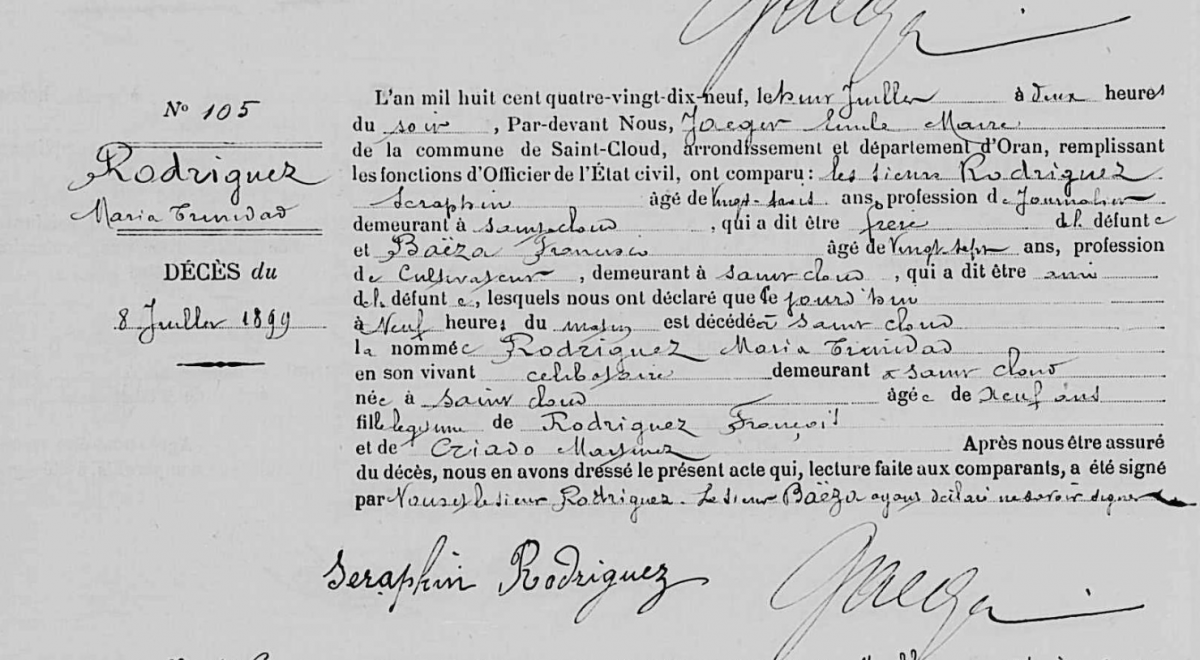 Jaeger
N° 105
Rodriguez
Maria Trinidad
DÉCÈS du
8 Juillet 1899
L'an mil huit cent quatre-vingt-dix-neuf, le huit Juillet à deux heures
du soir, Par-devant Nous, Jaeger Emile Maire
de la commune de Saint-Cloud, arrondissement et département d'Oran, remplissant
les fonctions d'Officier de l'État civil, ont comparu : les sieurs Rodriguez
Seraphin âgé de Vingt-six ans, profession de Journalier
demeurant à Saint-Cloud, qui a dit être frère de la défunte
et Baëza Francisco âgé de Vingt sept ans, profession
de Cultivateur, demeurant à Saint Cloud, qui a dit être ami
de la défunte, lesquels nous ont déclaré que ce jourd'hui
à Neuf heures du matin est décédée à Saint Cloud
la nommée Rodriguez Maria Trinidad
en son vivant celibataire demeurant à Saint Cloud
née à Saint Cloud âgée de Neuf ans
fille legitime de Rodriguez François
et de Criado Martinez Après nous être assuré
du décès, nous en avons dressé le présent acte qui, lecture faite aux comparants, a été signé
par Nous et le sieur Rodriguez. Le sieur Baëza ayant déclaré ne savoir signer
Seraphin Rodriguez Jaeger